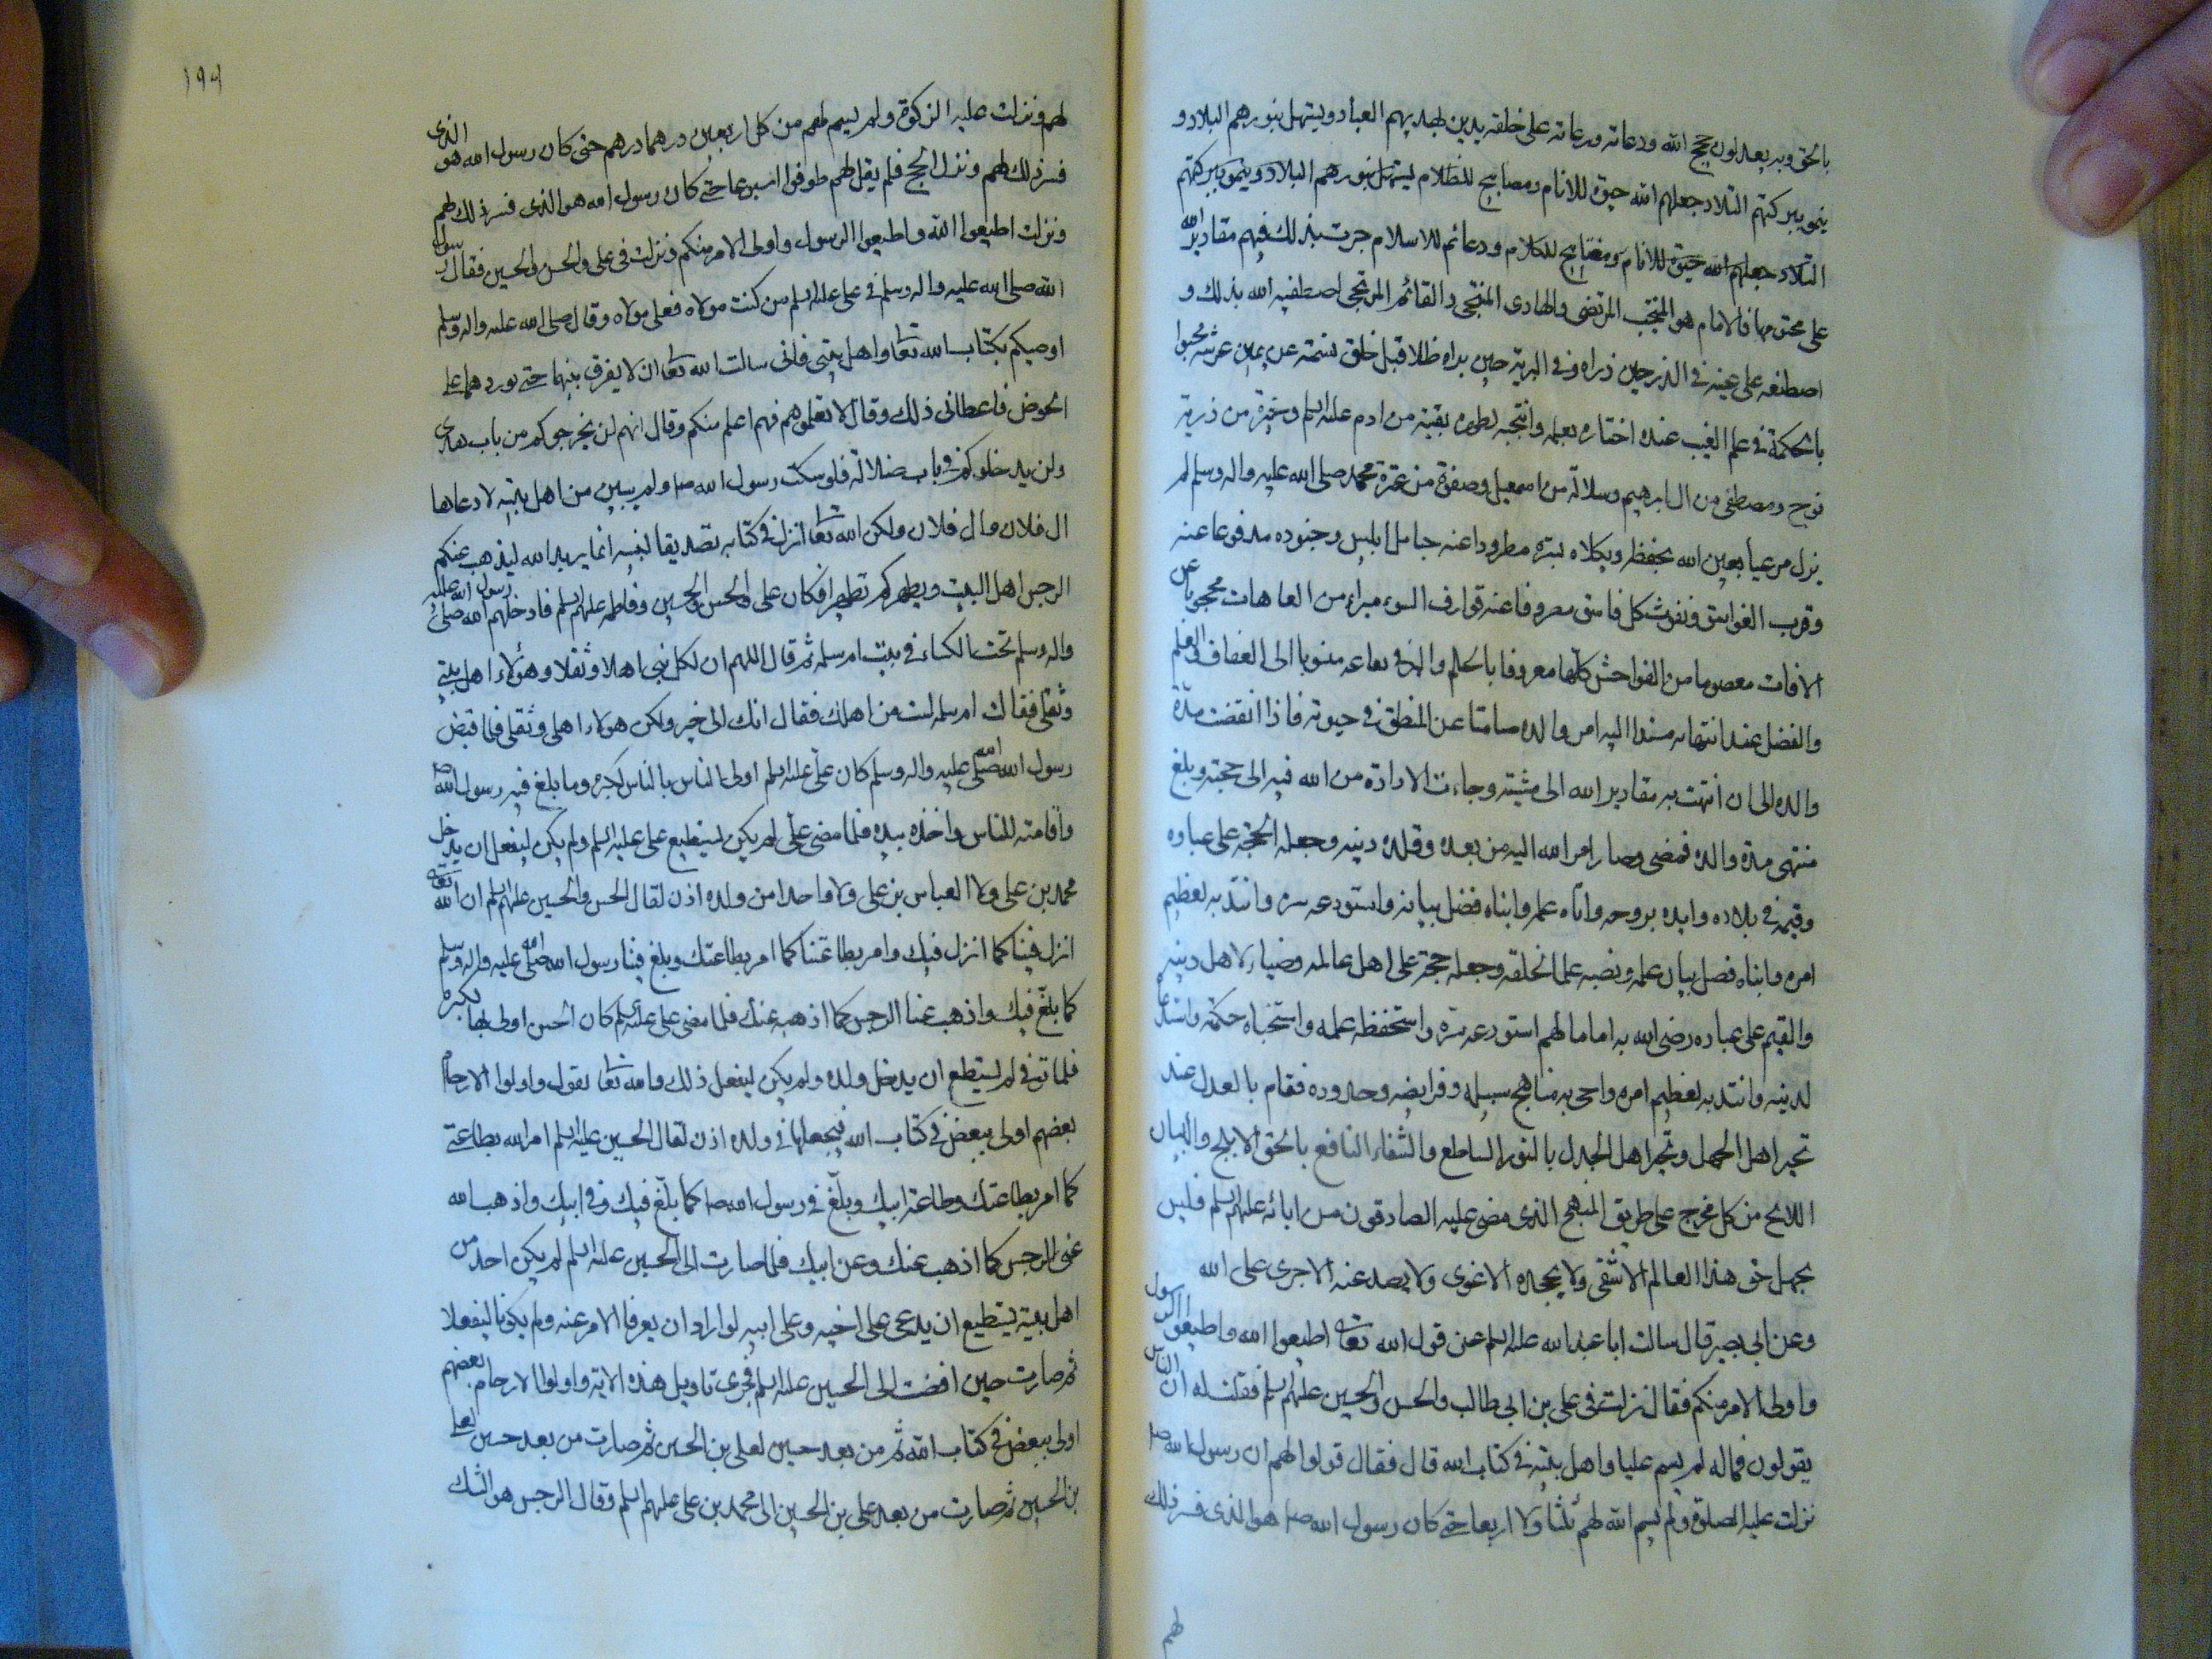 بالحق وبه يعدلون حجج الله ودعاته ورعاته على خلقه يدين بهديهم العباد ويستهل بنورهم البلاد و
ينمو ببركتهم التلاد جعلهم الله حيوة للانام ومصابيح للظلام ليستهل بنورهم البلاد وينمو ببركتهم
التلاد جعلهم الله حيوة للانام ومفاتيح للكلام ودعائم للاسلام جرت بذلك فيهم مقادير الله
على محتومها فالامام هو المنتجب المرتضى والهادى المنتجى والقائم المرتجى اصطفيه الله بذلك و
اصطنعه على عينه فى الذر حين ذراه وفى البرية حين براه ظلا قبل خلق نسمة عن يمين عرشه محبوا
بالحكمة فى علم الغيب عنده اختاره بعلمه وانتجبه لطهره بقية من ادم عليه السلم وخيرة من ذرية
نوح ومصطفى من ال ابرهيم وسلالة من اسمعيل وصفوة من عترة محمد صلى الله عليه واله وسلم لم
يزل مرعيا بعين الله يحفظه ويكلاه بستره مطرودا عنه حبايل ابليس وجنوده مدفوعا عنه
وقوب الغواسق ونفوث كل فاسق مصروفا عنه قوارف السوء مبراء من العاهات محجوبا عن
الافات معصوما من الفواحش كلها معروفا بالحلم والبر فى يفاعه منسوبا الى العفاف والعلم
والفضل عند انتهائه مسندا اليه امر والده صامتا عن المنطق فى حيوته فاذا انقضت مدة
والده الى ان انتهت به مقادير الله الى مشيته وجاءت الارادة من الله فيه الى حجته وبلغ
منتهى مدة والده فمضى وصار امر الله اليه من بعده وقلده دينه وجعله الحجة على عباده
وقيمه فى بلاده وايده بروحه واتاه علمه وانباه فضل بيانه واستودعه سره وانتدبه لعظيم
امره وانباه فصل بيان علمه ونصبه علما لخلقه وجعله حجة على اهل عالمه وضياء لاهل دينه
والقيم على عباده رضى الله به اماما لهم استودعه سره واستحفظه علمه واستخباه حكمته واسترعاه
لدينه وانتدبه لعظيم امره واحى به مناهج سبيله وفرايضه وحدوده فقام بالعدل عند
تحير اهل الجهل وتحير اهل الجدل بالنور الساطع والشفاء النافع بالحق الابلج والبيان
اللايح من كل مخرج على طريق المنهج الذى مضى عليه الصادقون من ابائه عليهم السلم فليس
يجهل حق هذا العالم الا شقى ولا يجحده الا غوى ولا يصد عنه الا جرى على الله
وعن ابى بصير قال سالت ابا عبد الله عليه السلم عن قول الله تعالى اطيعوا الله واطيعوا الرسول
واولى الامر منكم فقال نزلت فى على بن ابى طالب والحسن والحسين عليهم السلم فقلت له ان الناس
يقولون فما له لم يسم عليا واهل بيته فى كتاب الله قال فقال قولوا لهم ان رسول الله ص
نزلت عليه الصلوة ولم يسم الله لهم ثلثا ولا اربعا حتى كان رسول الله ص هو الذى فسر ذلك
لهم
١٩٤
لهم ونزلت عليه الزكوة ولم يسم لهم من كل اربعين درهما درهم حتى كان رسول الله هو الذى
فسر ذلك لهم ونزل الحج فلم يقل لهم طوفوا اسبوعا حتى كان رسول الله هو الذى فسر ذلك لهم
ونزلت اطيعوا الله واطيعوا الرسول واولى الامر منكم ونزلت فى على والحسن والحسين فقال رسول
الله صلى الله عليه واله وسلم فى على عليه السلم من كنت مولاه فعلى مولاه وقال صلى الله عليه واله وسلم
اوصيكم بكتاب الله تعالى واهل بيتى فانى سالت الله تعالى ان لا يفرق بينهما حتى يوردهما على
الحوض فاعطانى ذلك وقال لا تعلموهم فهم اعلم منكم وقال انهم لن يخرجوكم من باب هدى
ولن يدخلوكم فى باب ضلالة فلو سكت رسول الله ص ولم يبين من اهل بيته لادعاها
ال فلان وال فلان ولكن الله تعالى انزل فى كتابه تصديقا لنبيه انما يريد الله ليذهب عنكم
الرجس اهل البيت ويطهركم تطهيرا فكان على والحسن والحسين وفاطمة عليهم السلم فادخلهم رسول الله صلى الله عليه
واله وسلم تحت الكساء فى بيت ام سلمه ثم قال اللهم ان لكل نبى اهلا وثقلا وهؤلاء اهل بيتى
وثقلى فقالت ام سلمه الست من اهلك فقال انك الى خير ولكن هولاء اهلى وثقلى فلما قبض
رسول الله صلى الله عليه واله وسلم كان على عليه السلم اولى الناس بالناس لكثرة وما بلغ فيه رسول الله ص
واقامته للناس واخذه بيده فلما مضى على لم يكن يستطيع على عليه السلم ولم يكن ليفعل ان يدخل
محمد بن على ولا العباس بن على ولا واحدا من ولده اذن لقال الحسن والحسين عليهم السلم ان الله تعالى
انزل فينا كما انزل فيك وامر بطاعتنا كما امر بطاعتك وبلغ فينا رسول الله صلى الله عليه واله وسلم
كما بلغ فيك واذهب عنا الرجس كما اذهب عنك فلما مضى على عليه السلم كان الحسن اولى بها لكبره
فلما توفى لم يستطع ان يدخل ولده ولم يكن ليفعل ذلك والله تعالى يقول واولوا الارحام
بعضهم اولى ببعض فى كتاب الله فيجعلها فى ولده اذن لقال الحسين عليه السلم امر الله بطاعتى
كما امر بطاعتك وطاعة ابيك وبلغ فى رسول الله ص كما بلغ فيك وفى ابيك واذهب الله
عنى الرجس كما اذهب عنك وعن ابيك فلما صارت الى الحسين عليه السلم لم يكن احد من
اهل بيته يستطيع ان يدعى على اخيه وعلى ابيه لو ارادا ان يصرفا الامر عنه ولم يكونا ليفعلا
ثم صارت حين افضت الى الحسين عليه السلم فجرى تاويل هذه الاية واولوا الارحام بعضهم
اولى ببعض فى كتاب الله ثم من بعد حسين لعلى بن الحسين ثم صارت من بعد حسين لعلى
بن الحسين ثم صارت من بعد على بن الحسين الى محمد بن على عليهم السلم وقال الرجس هو الشك